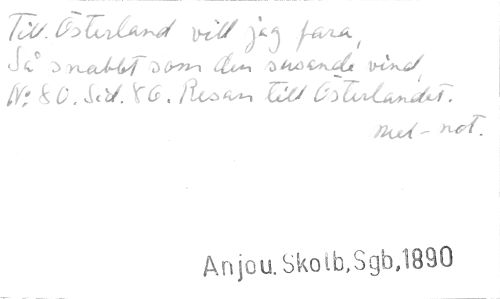 Till Österland vill jag fara,
Så snabbt som den susande vind,
No 80. Sid. 86. Resan till Österlandet.
med not.
Anjou. Skolb, Sgb, 1890